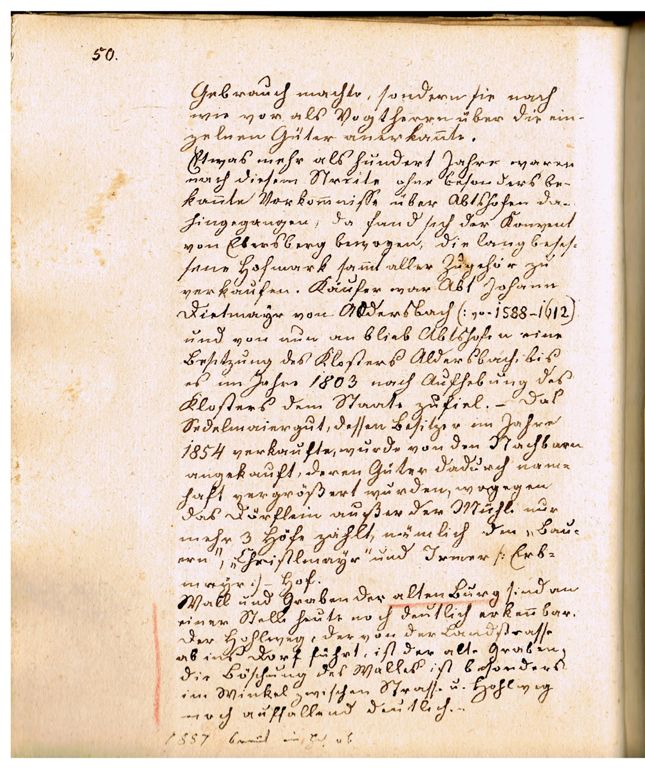 50.
Gebrauch machte, sondern sie nach
wie vor als Vogtherrn über die ein-
zelnen Güter anerkannte.
Etwas mehr als hundert Jahre waren
nach diesem Streite ohne besonders be-
kannte Vorkommnisse über Abtshofen da-
hingegangen, da fand sich der Konvent
von Ebersberg bewogen, die langbeses-
sene Hofmark sammt aller Zugehör zu
verkaufen. Käufer war Abt Johann
Dietmayr von Aldersbach (: 1588-1612)
und von nun an blieb Abtshofen eine
Besitzung des Klosters Aldersbach, bis
es im Jahre 1803 nach Aufhebung des
Klosters dem Staate zufiel. – Das
Sedelmaiergut, dessen Besitzer im Jahre
1854 verkaufte, wurde von den Nachbarn
angekauft, deren Güter dadurch nam-
haft vergrößert wurden, wogegen
das Dörflein außer der Mühle nur
mehr 3 Höfe zählt, nämlich den „Bau-
ern", „Christlmayr" und Irmer (: Erb-
mayr :) – Hof.
Wall und Graben der alten Burg sind an
einer Stelle heute noch deutlich erkennbar.
Der Hohlweg, der von der Landstrasse
ab ins Dorf führt, ist der alte Graben,
die Böschung des Walles ist besonders
im Winkel zwischen Strasse u. Hohlweg
noch auffallend deutlich. –
1887